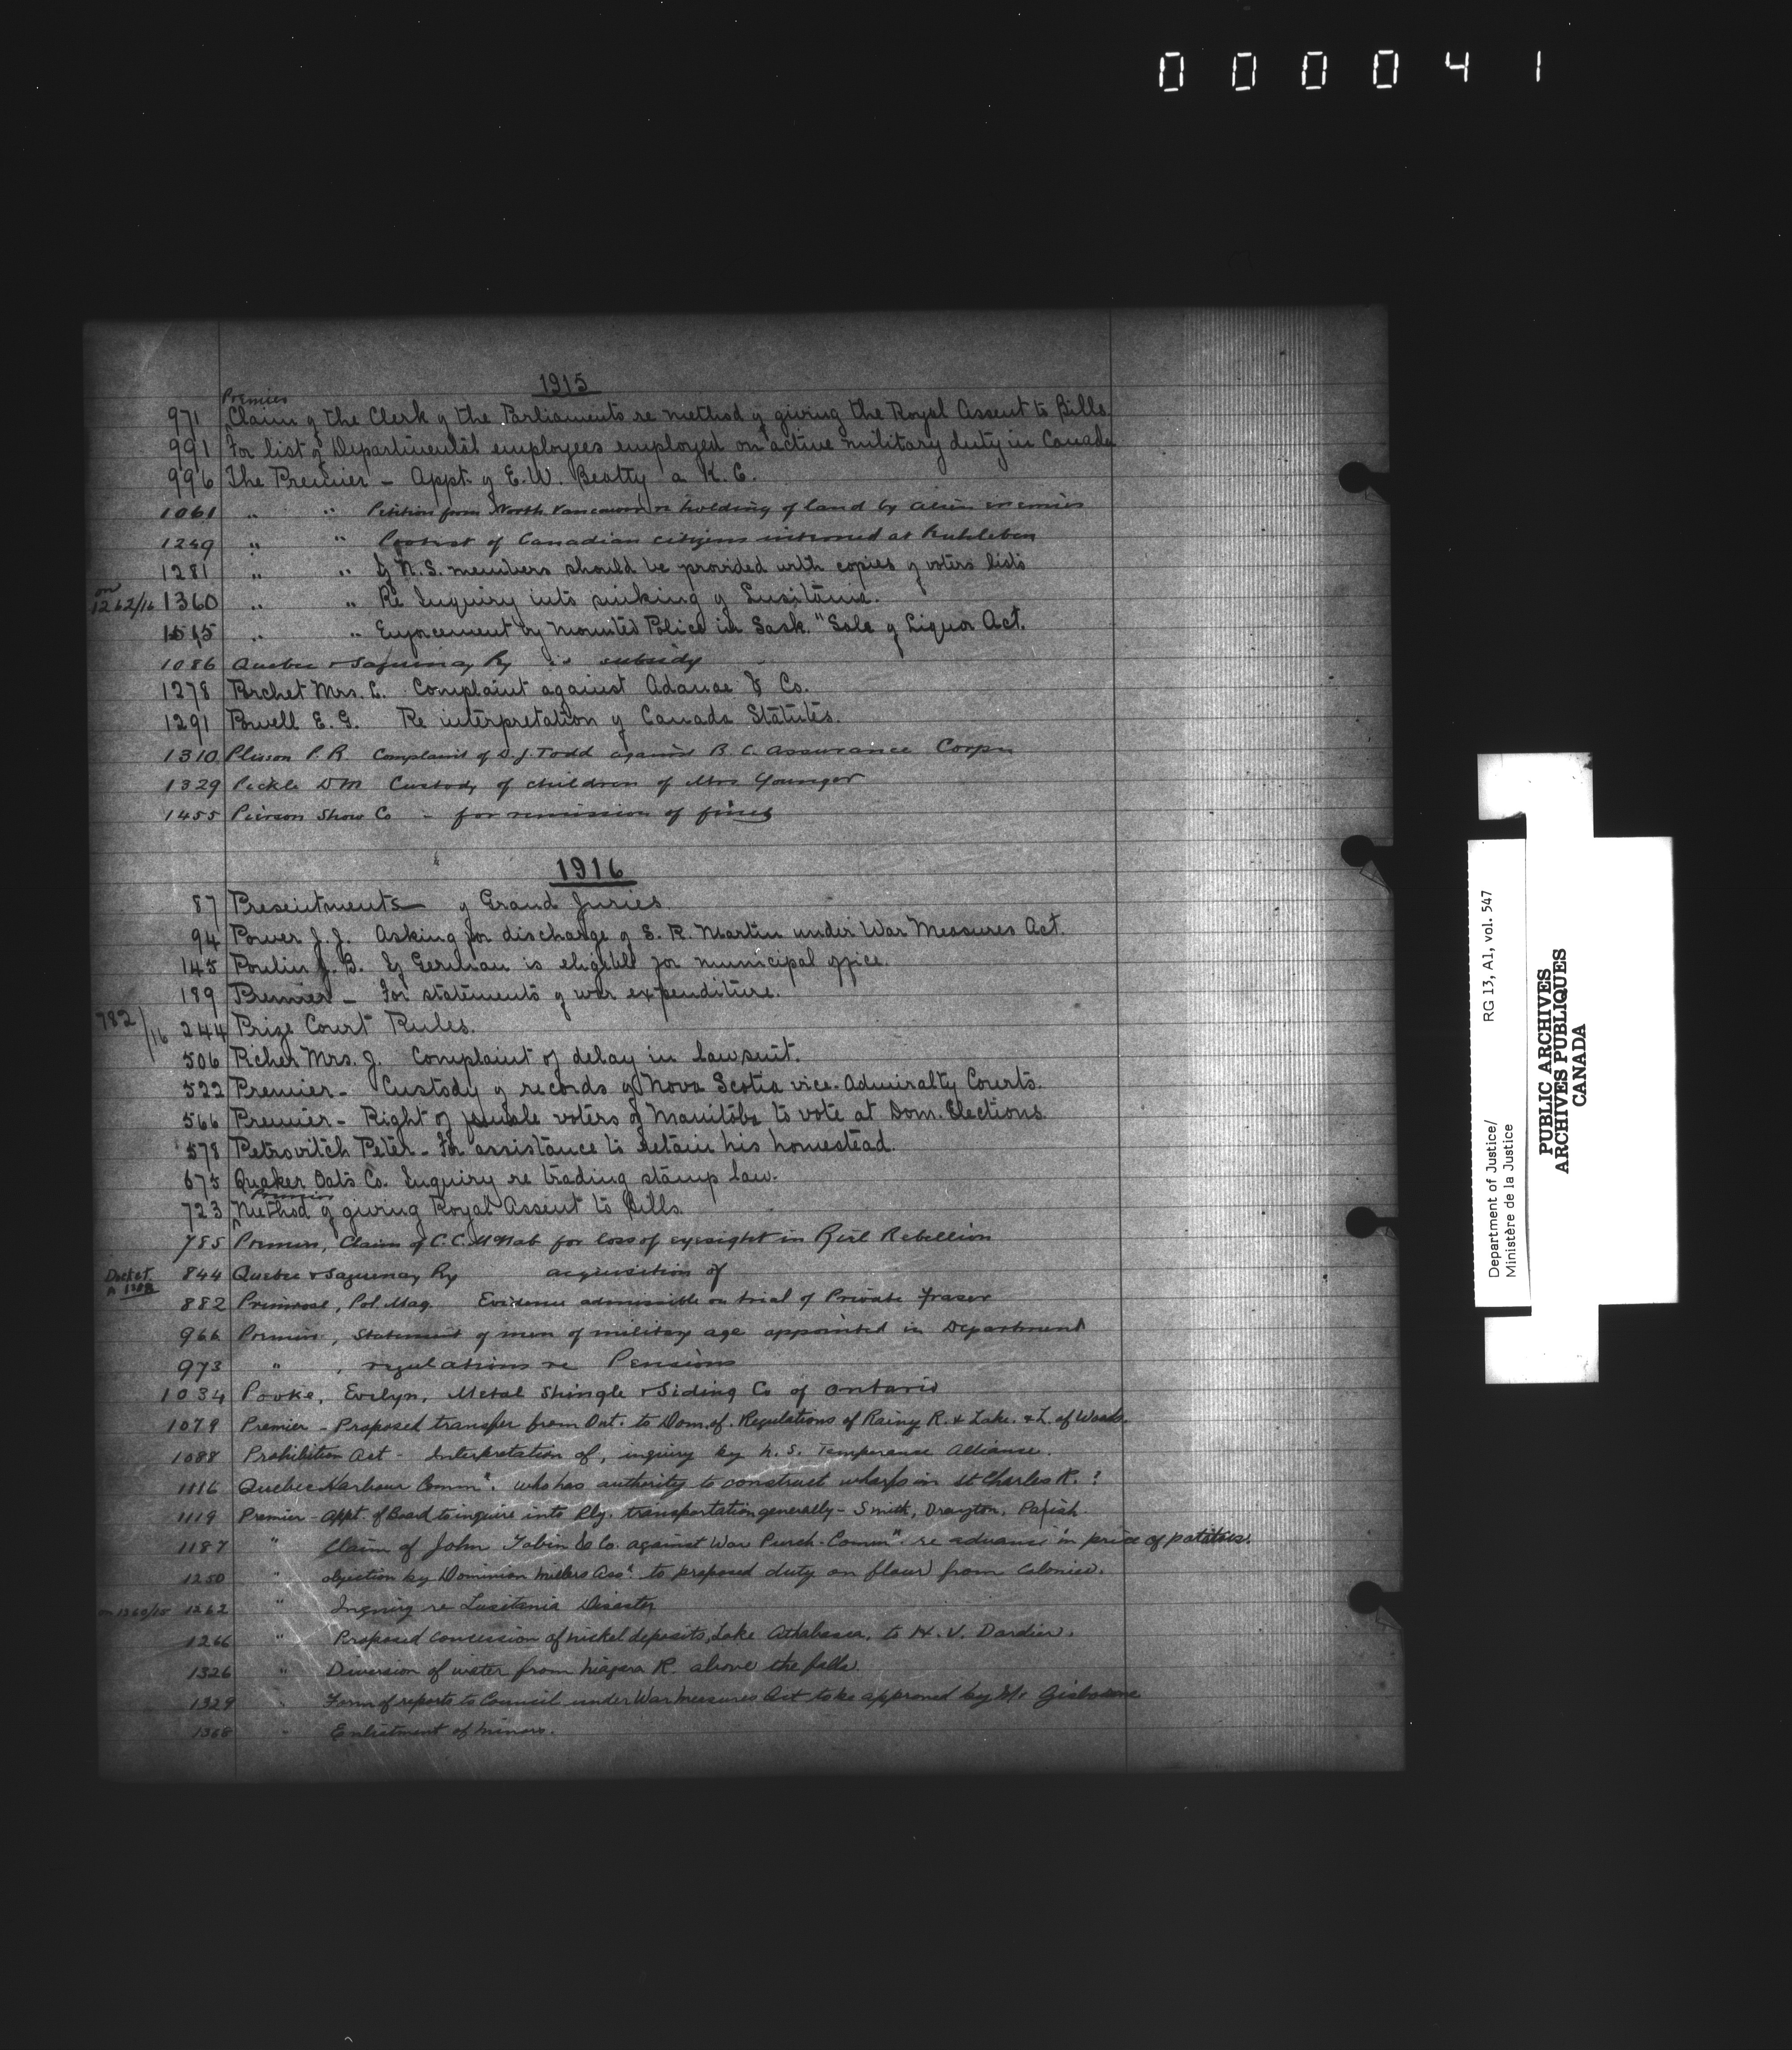 000041
1915
Premier
971 Claim of the Clerk of the Parliaments re method of giving the Royal Assent to Bills.
991 For list of Departmental employees employed on active military duty in Canada
996 The Premier - Appt. of E. W. Beatty a K. C.
1061 " " Petition from North Vancouver re holding of land by alien enemies
1249 " " Protest of Canadian citizens interned at Ruhleben
1281 " " If N. S. members should be provided with copies of voters lists
on 1262/16 1360 " " Re Inquiry into sinking of Lusitania.
1515 " " Enforcement by Mounted Police in Sask. "Sale of Liquor Act.
1086 Quebec & Saguenay Ry subsidy
1278 Porchet Mrs. C. Complaint against Adanac & Co.
1291 Powell E. G. Re interpretation of Canada Statutes.
1310 Plisson P. R Complaint of D. J. Todd against B. C. Assurance Corpn
1329 Pickle D M Custody of children of Mrs Younger
1455 Pierson Show Co - for remission of fines
1916
87 Presentments of Grand Juries
94 Power J. J. Asking for discharge of S. R. Martin under War Measures Act.
145 Poulin J. B. If German is eligible for municipal office.
189 Premier - For statements of war expenditure.
782/16 244 Prize Court Rules.
506 Richer Mrs. J. Complaint of delay in lawsuit.
522 Premier - Custody of records of Nova Scotia vice-Admiralty Courts.
566 Premier - Right of female voters of Manitoba to vote at Dom. Elections.
578 Petrovitch Peter - For assistance to retain his homestead.
675 Quaker Oats Co. Inquiry re trading stamp law.
Premier
723 Method of giving Royal Assent to Bills
785 Premier, Claim of C. C. McNab for loss of eyesight in Riel Rebellion
Docket 844 Quebec & Saguenay Ry acquisition of
882 Primrose, Pol. Mag. Evidence admissible on trial of Private Fraser
966 Premier, Statement of men of military age appointed in Department
973 " , regulations re Pensions
1034 Pooke, Evelyn, Metal Shingle & Siding Co of Ontario
1079 Premier - Proposed transfer from Ont. to Dom. of. Regulations of Rainy R. & Lake. & L. of Woods.
1088 Prohibition Act - Interpretation of, inquiry by N. S. Temperance Alliance.
1116 Quebec Harbour Commn. who has authority to construct wharfs in St Charles R. ?
1119 Premier - Appt. of Board to inquire into Rly. transportation generally - Smith, Drayton, Parish.
1187 " Claim of John Tobin & Co. against War Purch. Commn. re advance in price of potatoes.
1250 " objection by Dominion Millers Assn. to proposed duty on flour from Colonies.
on 1360/15 1262 " Inquiry re Lusitania Disaster
1266 " Proposed concession of nickel deposits, Lake Athabasca, to H. V. Dardier.
1326 " Diversion of water from Niagara R. above the falls.
1329 " Form of reports to Council under War Measures Act to be approved by Mr Gisborne
1368 " Enlistment of minors.
Department of Justice/ RG 13, A1, vol. 547
Ministère de la Justice
PUBLIC ARCHIVES
ARCHIVES PUBLIQUES
CANADA